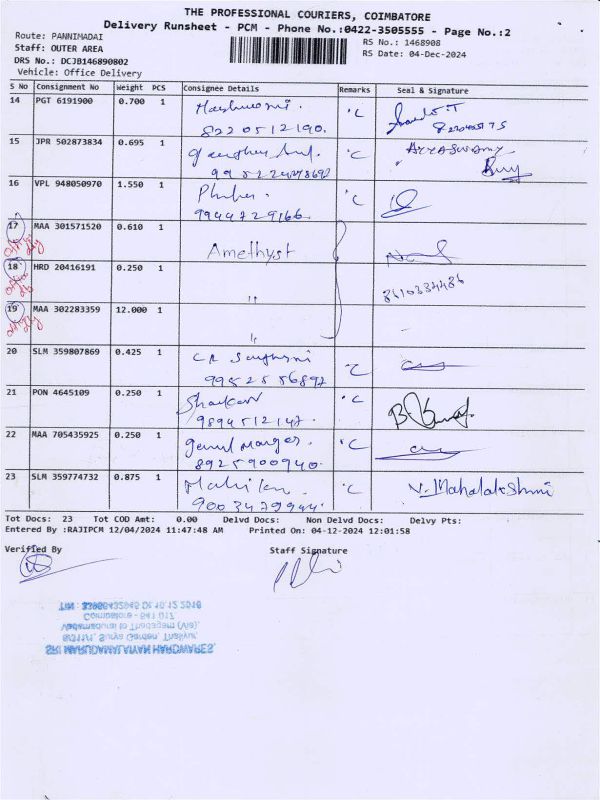 THE PROFESSIONAL COURIERS, COIMBATORE
Delivery Runsheet - PCM - Phone No.:0422-3505555 - Page No.:2
Route: PANNIMADAI
RS No.: 1468908
Staff: OUTER AREA
RS Date: 04-Dec-2024
DRS No.: DCJB146890802
Vehicle: Office Delivery
S No Consignment No Weight PCS Consignee Details Remarks Seal & Signature
14 PGT 6191900 0.700 1
8220512190.
15 JPR 502873834 0.695 1
AYYASWAMY
16 VPL 948050970 1.550 1
9944729166.
17 MAA 301571520 0.610 1 Amethyst
18 HRD 20416191 0.250 1 "
8610334486
19 MAA 302283359 12.000 1 "
20 SLM 359807869 0.425 1
9952556892
21 PON 4645109 0.250 1
9894512142.
22 MAA 705435925 0.250 1
8925900940.
23 SLM 359774732 0.875 1 V. Mahalakshmi
9003479944.
Tot Docs: 23 Tot COD Amt: 0.00 Delvd Docs: Non Delvd Docs: Delvy Pts:
Entered By :RAJIPCM 12/04/2024 11:47:48 AM Printed On: 04-12-2024 12:01:58
Verified By Staff Signature
SRI MARUDAMALAIYAN HARDWARES,
6/311/1, Surya Garden, Thaliyur,
Vadamadurai to Thadagam (Via),
Coimbatore - 641 017